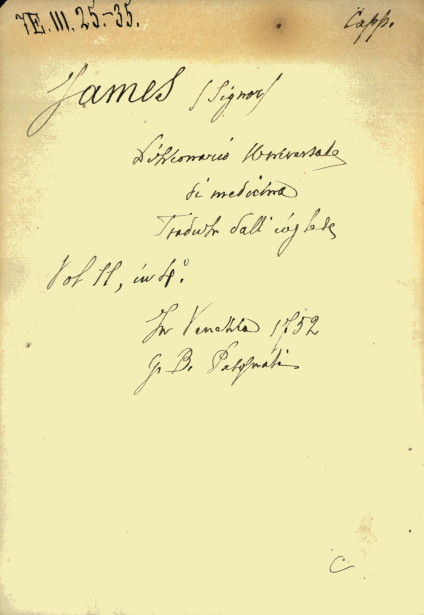 7E. III. 25.-35.
Capp.
James (Signor)
Dizzionario Universale
di medicina
Tradotto dall' inglese
Vol 11, in 4°.
In Venezia 1752
G. B. Pasquali
C